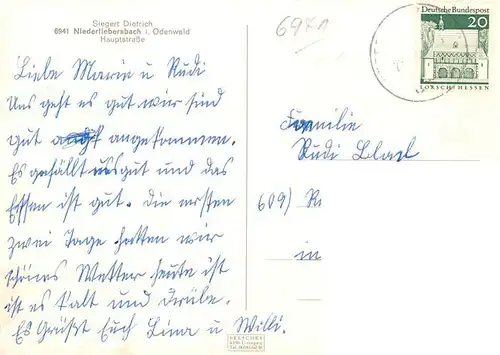 Siegert Dietrich
6941 Niederliebersbach i. Odenwald
Hauptstraße
Liebe Maria u Rudi
Uns geht es gut wir sind
gut angekommen.
Es gefällt uns gut und das
Essen ist gut. Die ersten
zwei Tage hatten wir
schönes Wetter heute ist
ist es kalt und trübe.
Es Grüßt Euch Lina u Willi.
6941
Deutsche Bundespost
20
LORSCH/HESSEN
Familie
Rudi
609)
in